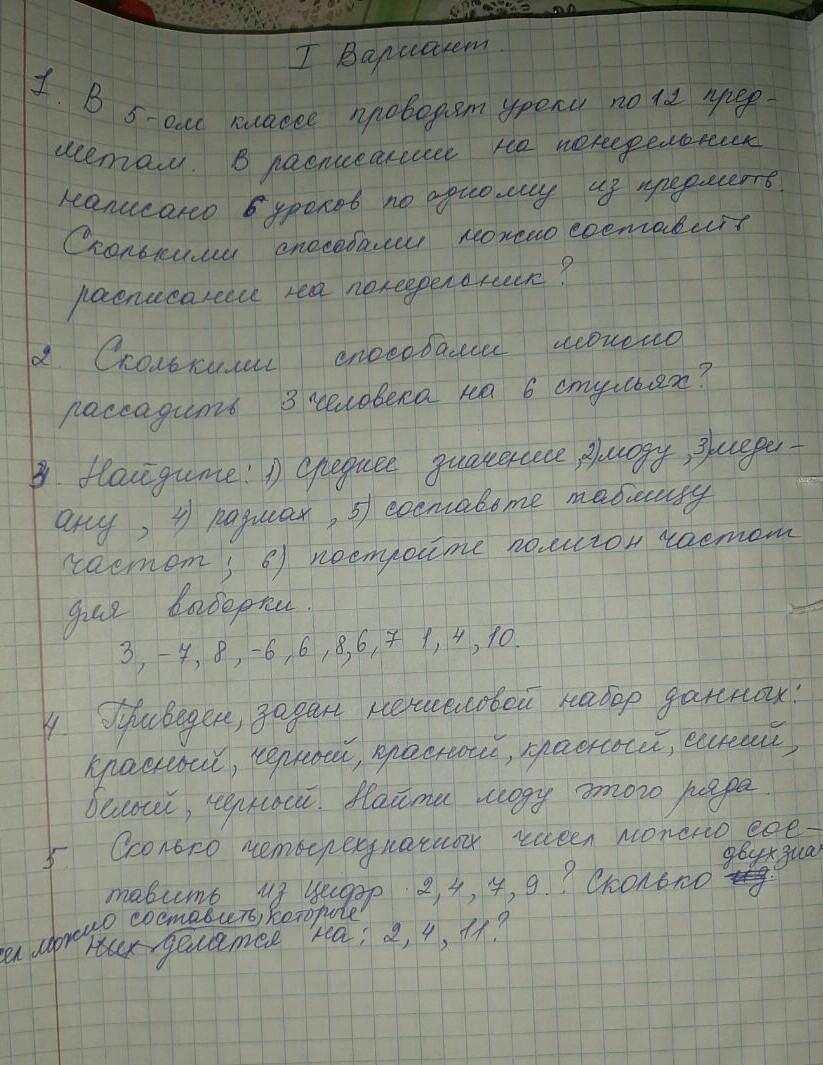 I Вариант.
1. В 5-ом классе проводят уроки по 12 пред-
метам. В расписании на понедельник
написано 6 уроков по одному из предметов.
Сколькими способами можно составить
расписание на понедельник?
2. Сколькими способами можно
рассадить 3 человека на 6 стульях?
3. Найдите: 1) среднее значение, 2) моду, 3) меди-
ану, 4) размах, 5) составьте таблицу
частот; 6) постройте полигон частот
для выборки.
3, -7, 8, -6, 6, 8, 6, 7 1, 4, 10.
4. Приведен, задан нечисловой набор данных:
красный, черный, красный, красный, синий,
белый, черный. Найти моду этого ряда.
5 Сколько четырехзначных чисел можно сос-
тавить из цифр 2, 4, 7, 9.? Сколько двухзнач
сел можно составить, которые
делятся на: 2, 4, 11?